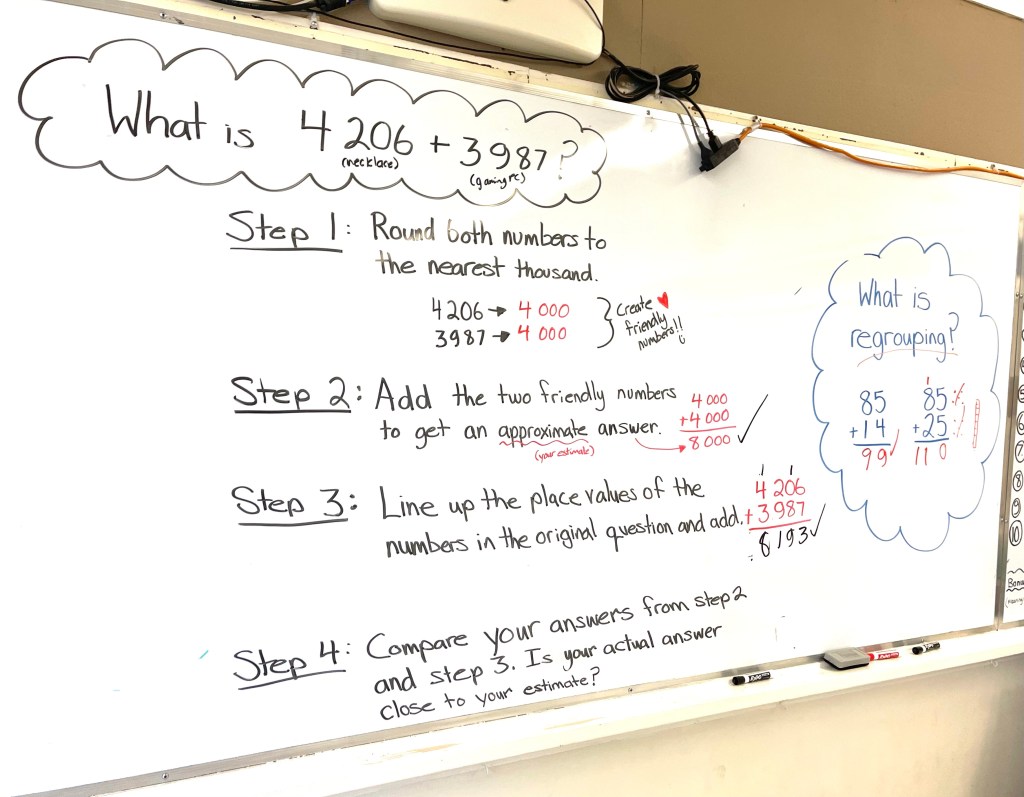 What is 4 206 + 3 987 ?
(necklace)
(gaming PC)
Step 1: Round both numbers to
the nearest thousand.
4206 → 4 000
3987 → 4 000
Create ♥
friendly
numbers!!
Step 2: Add the two friendly numbers
to get an approximate answer.
(your estimate)
4 000
+4 000
8 000 ✓
Step 3: Line up the place values of the
numbers in the original question and add.
1 1
4 206
+3 987
8193 ✓
Step 4: Compare your answers from step 2
and step 3. Is your actual answer
close to your estimate?
What is
regrouping?
85
+14
99 ✓
1
85
+25
110
5
6
7
8
9
10